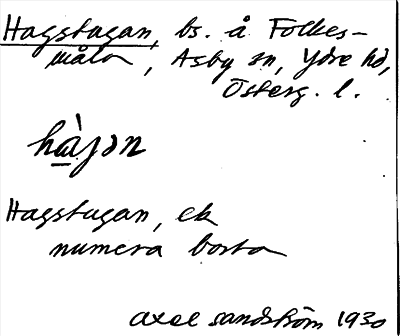 Hagstugan, bs. å Folkes-
måla, Asby sn, Ydre hd,
Österg. l.
Hagstugan, ek
numera borta
Axel Sandström 1930